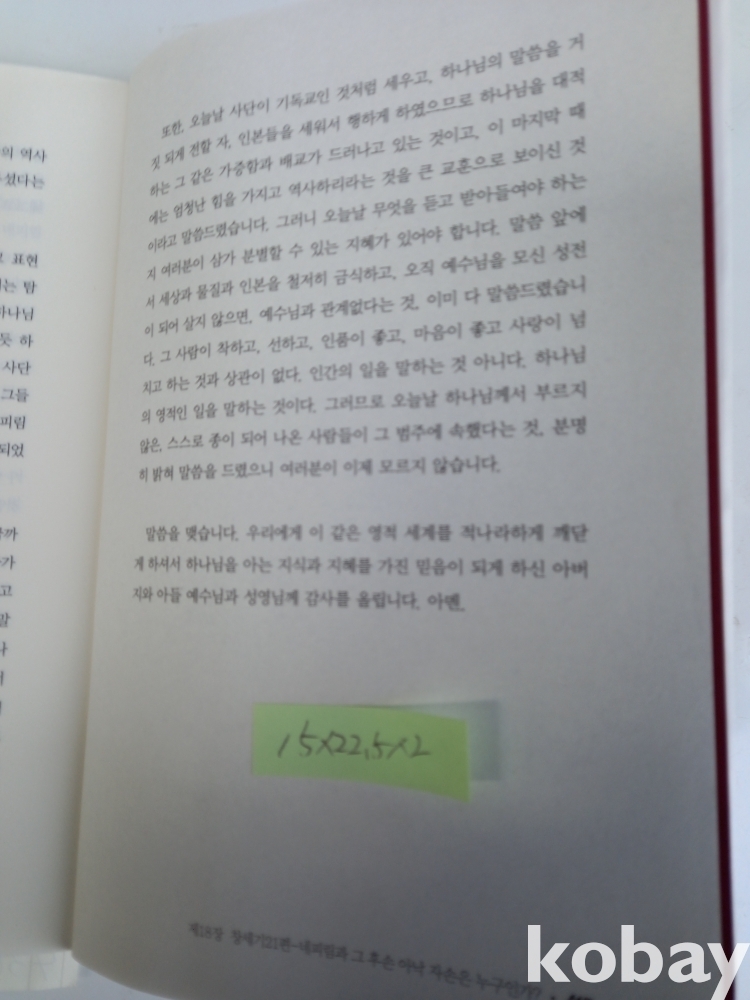 의 역사
셨다는
표현
는 탐
하나님
듯 하
사단
그들
피림
되었
까
가
고
말
나
또한, 오늘날 사단이 기독교인 것처럼 세우고, 하나님의 말씀을 거
짓 되게 전할 자, 인본들을 세워서 행하게 하였으므로 하나님을 대적
하는 그 같은 가증함과 배교가 드러나고 있는 것이고, 이 마지막 때
에는 엄청난 힘을 가지고 역사하리라는 것을 큰 교훈으로 보이신 것
이라고 말씀드렸습니다. 그러니 오늘날 무엇을 듣고 받아들여야 하는
지 여러분이 삼가 분별할 수 있는 지혜가 있어야 합니다. 말씀 앞에
서 세상과 물질과 인본을 철저히 금식하고, 오직 예수님을 모신 성전
이 되어 살지 않으면, 예수님과 관계없다는 것, 이미 다 말씀드렸습니
다. 그 사람이 착하고, 선하고, 인품이 좋고, 마음이 좋고 사랑이 넘
치고 하는 것과 상관이 없다. 인간의 일을 말하는 것 아니다. 하나님
의 영적인 일을 말하는 것이다. 그러므로 오늘날 하나님께서 부르지
않은, 스스로 종이 되어 나온 사람들이 그 범주에 속했다는 것, 분명
히 밝혀 말씀을 드렸으니 여러분이 이제 모르지 않습니다.
말씀을 맺습니다. 우리에게 이 같은 영적 세계를 적나라하게 깨닫
게 하셔서 하나님을 아는 지식과 지혜를 가진 믿음이 되게 하신 아버
지와 아들 예수님과 성령님께 감사를 올립니다. 아멘.
15x22,5x2
제18장 창세기21편-네피림과 그 후손 아낙 자손은 누구인가?
kobay